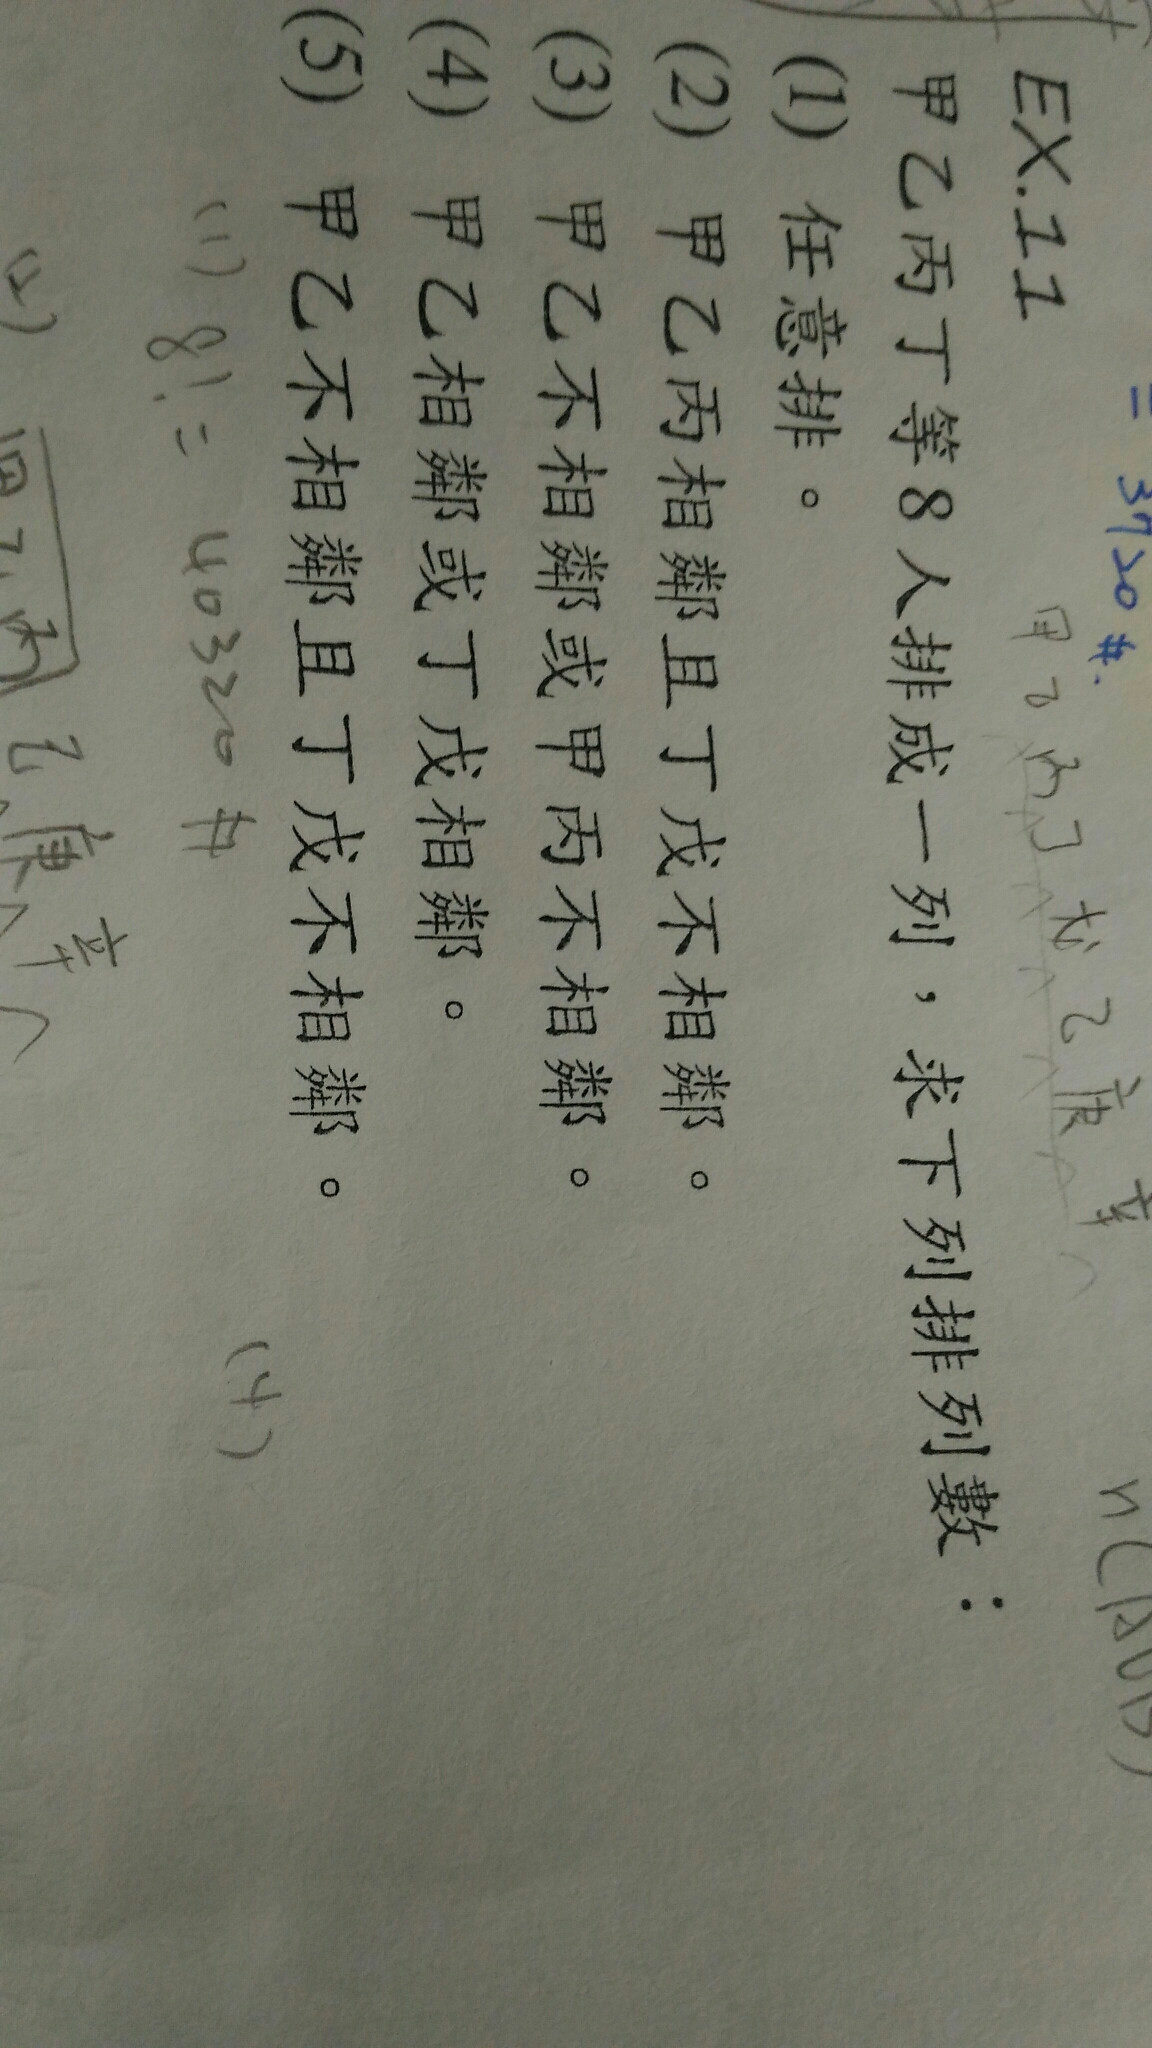 = 3720 #.
EX.11
甲乙丙丁等8人排成一列，求下列排列數：
(1) 任意排。
(2) 甲乙丙相鄰且丁戊不相鄰。
(3) 甲乙不相鄰或甲丙不相鄰。
(4) 甲乙相鄰或丁戊相鄰。
(5) 甲乙不相鄰且丁戊不相鄰。
(1) 8! = 40320 #
(4)